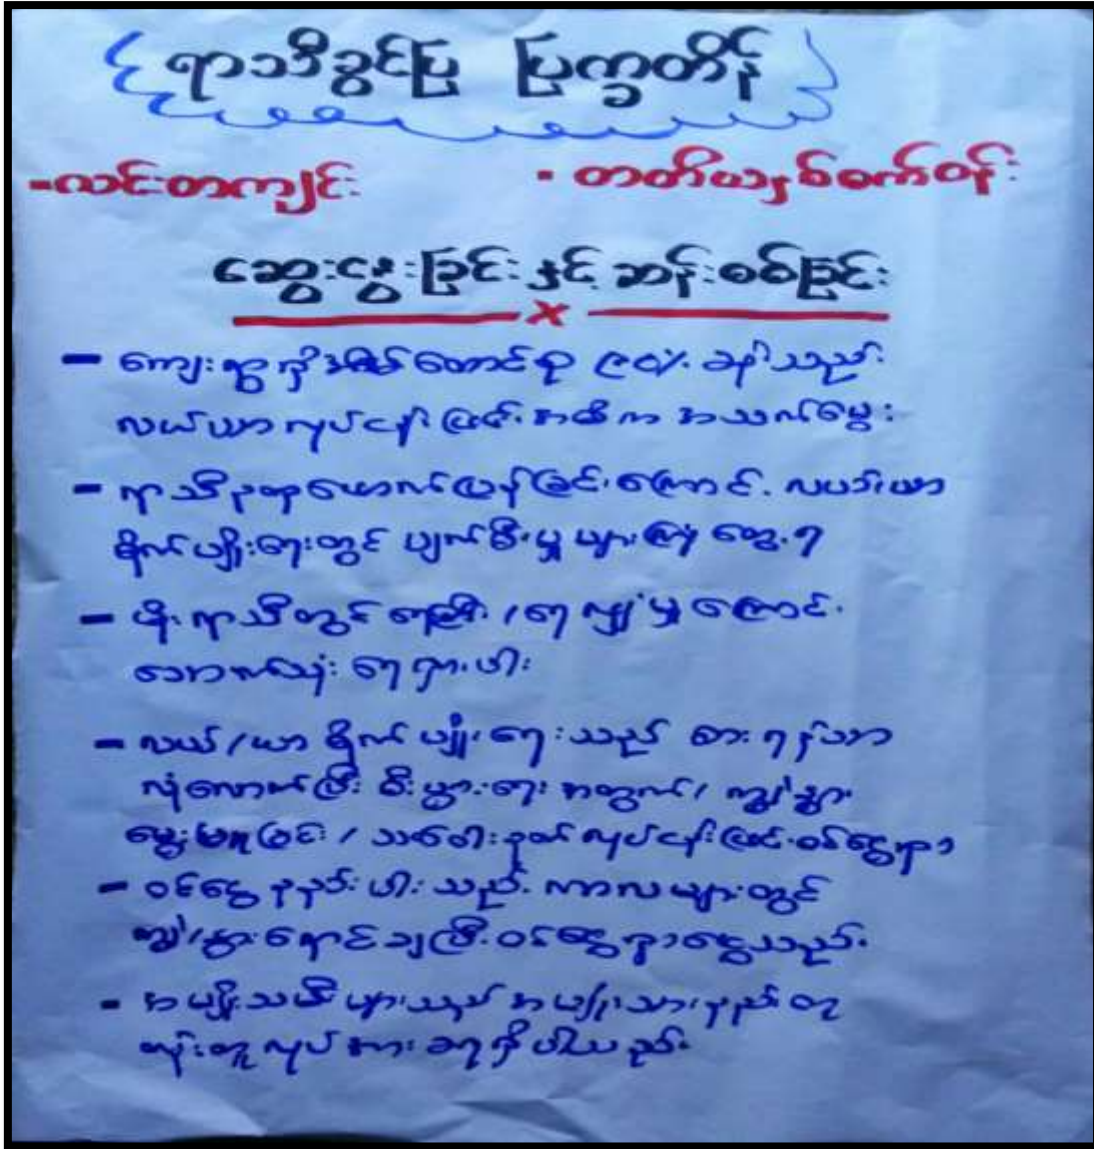 ရာသီခွင်ပြ ပြက္ခတိန်
-လင်းတကျင်း - တတိယနှစ်စက်ဝန်း
ဆွေးနွေးခြင်းနှင့် ဆန်းစစ်ခြင်း
x
- ကျေးရွာရှိအိမ်ထောင်စု ၉၀% ခန့်သည်
လယ်ယာလုပ်ငန်းဖြင့် အဓိက အသက်မွေး
- ရာသီဥတုဖောက်ပြန်ခြင်းကြောင့် လယ်/ယာ
စိုက်ပျိုးရေးတွင် ပျက်စီးမှုများကြုံတွေ့ရ
- မိုးရာသီတွင် ရေကြီး/ရေလျှံမှုကြောင့်
သောက်သုံးရေရှားပါး
- လယ်/ယာ စိုက်ပျိုးရေးသည် စားရန်သာ
လုံလောက်ပြီး စီးပွားရေးအတွက်/ ကျွဲ/နွား
မွေးမြူခြင်း / သစ်ဝါးခုတ်လုပ်ငန်းဖြင့် ဝင်ငွေရှာ
- ဝင်ငွေနည်းပါးသည့် ကာလများတွင်
ကျွဲ/နွားရောင်းချပြီး ဝင်ငွေရှာဖွေသည်
- အမျိုးသမီးများသည် အမျိုးသားနည်းတူ
တန်းတူလုပ်အားခရှိပါသည်